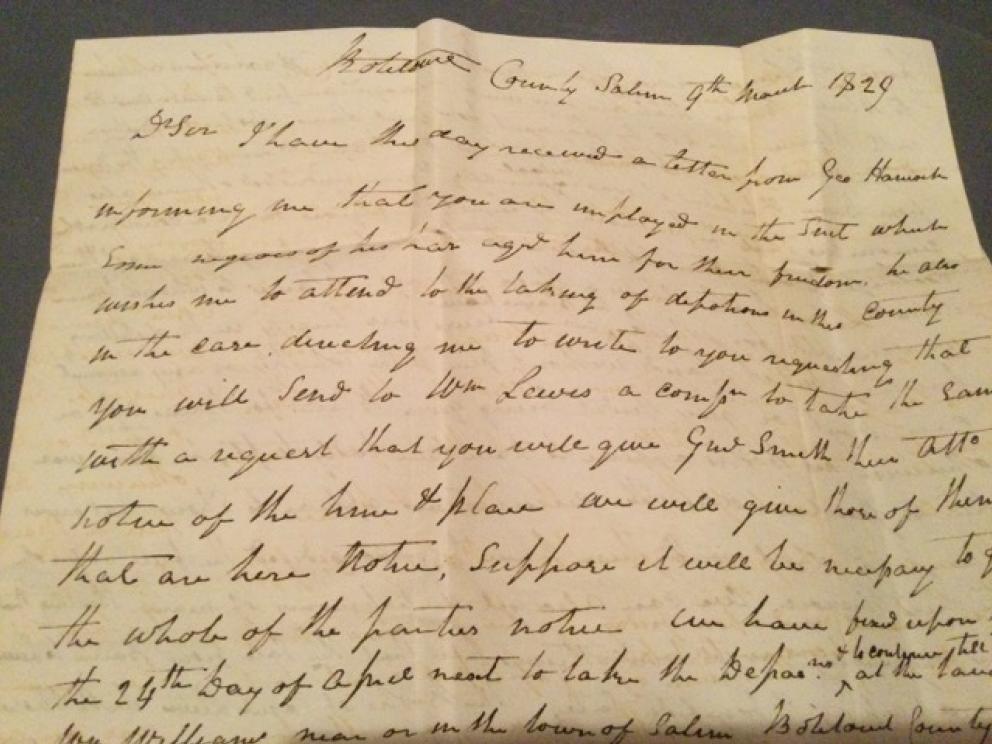 County Salem 9th March 1829
Dr Sir I have this day received a letter from Geo Hancock
informing me that you are imployed in the Suit which
Some negroes of his har agst him for their freedom. he also
wishes me to attend to the taking of depotions in this County
in the case, directing me to write to you requesting that
you will Send to Wm Lewis a comsn to take the Sam
with a request that you will give Smith their Atto
notice of the time & place we will give those of them
that are here Notice, Suppose it will be necessary to g
the whole of the parties notice we have fixed upon
the 24th Day of April next to take the & to continue till
at the
Williams near or in the town of Salem County